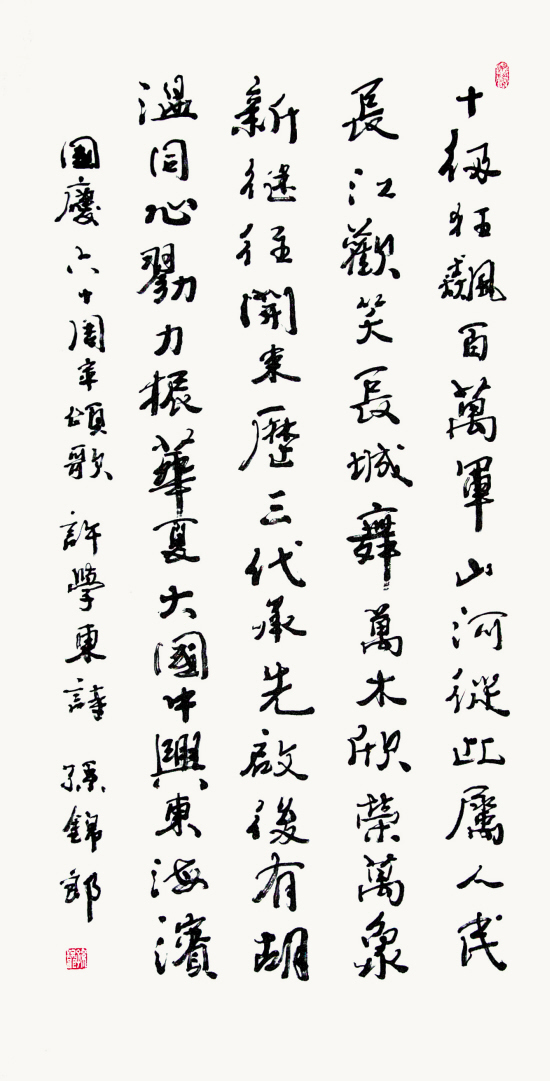 十級狂飆百萬軍山河從此屬人民
長江歡笑長城舞萬木欣榮萬象
新繼往開來歷三代承先啟後有胡
溫同心勠力振華夏大國中興東海濱
國慶六十周年頌歌 許學東詩 孫錦郎